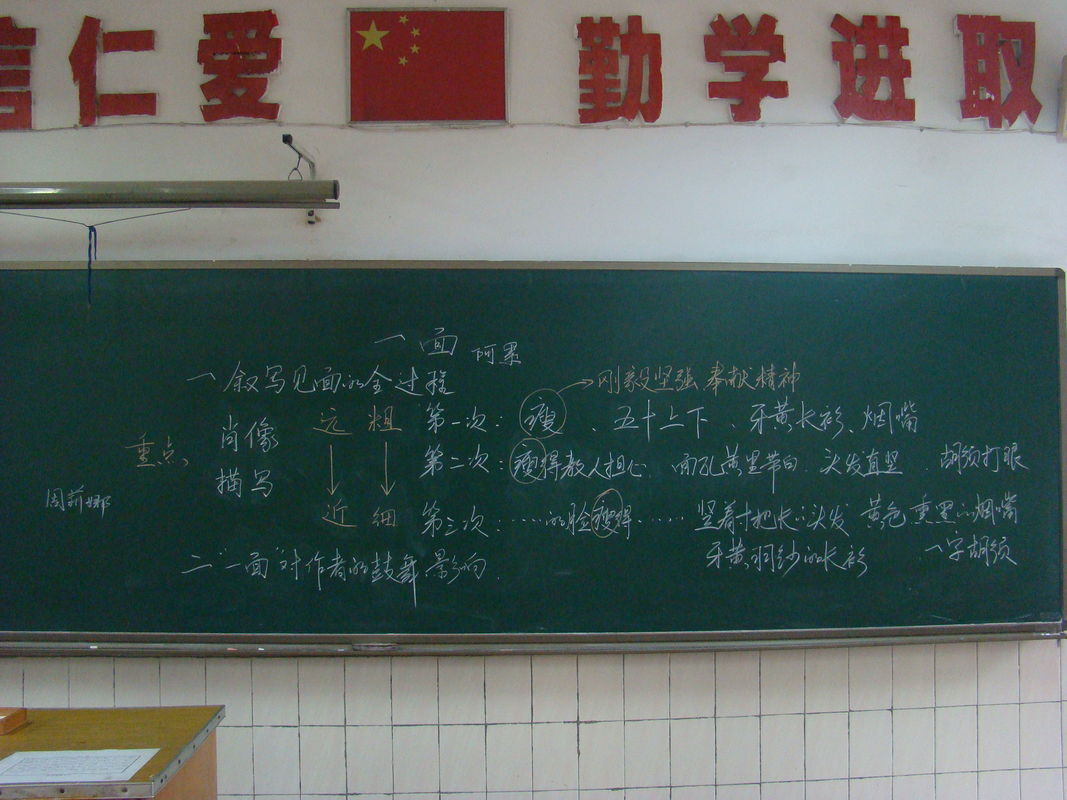 信仁爱 勤学进取
一面 阿累
一 叙写见面的全过程
刚毅坚强 奉献精神
重点、 肖像描写
远 粗 第一次：瘦、五十上下、牙黄长衫、烟嘴
第二次：瘦得教人担心 面孔黄里带白、头发直竖、胡须打眼
近 细 第三次：……的脸瘦得…… 竖着寸把长的头发 黄色熏黑的烟嘴
牙黄羽纱的长衫 一字胡须
周莉娜
二 "一面"对作者的鼓舞、影响.